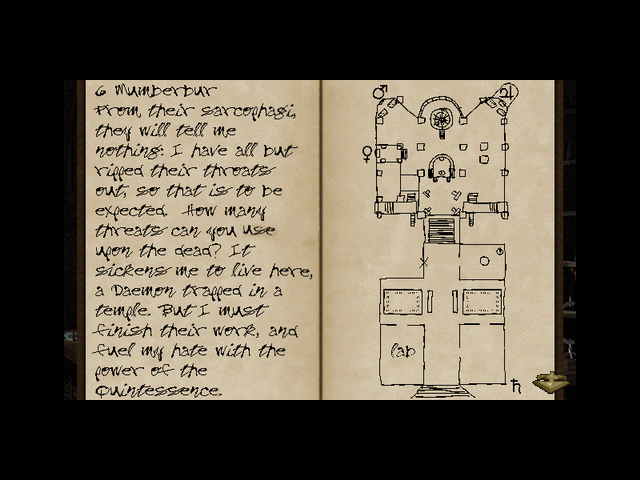 6 Mumberbur
From their sarcophagi,
they will tell me
nothing: I have all but
ripped their throats
out, so that is to be
expected. How many
threats can you use
upon the dead? It
sickens me to live here,
a Daemon trapped in a
temple. But I must
finish their work, and
fuel my hate with the
power of the
Quintessence.
♂
♃
♀
lab
♄